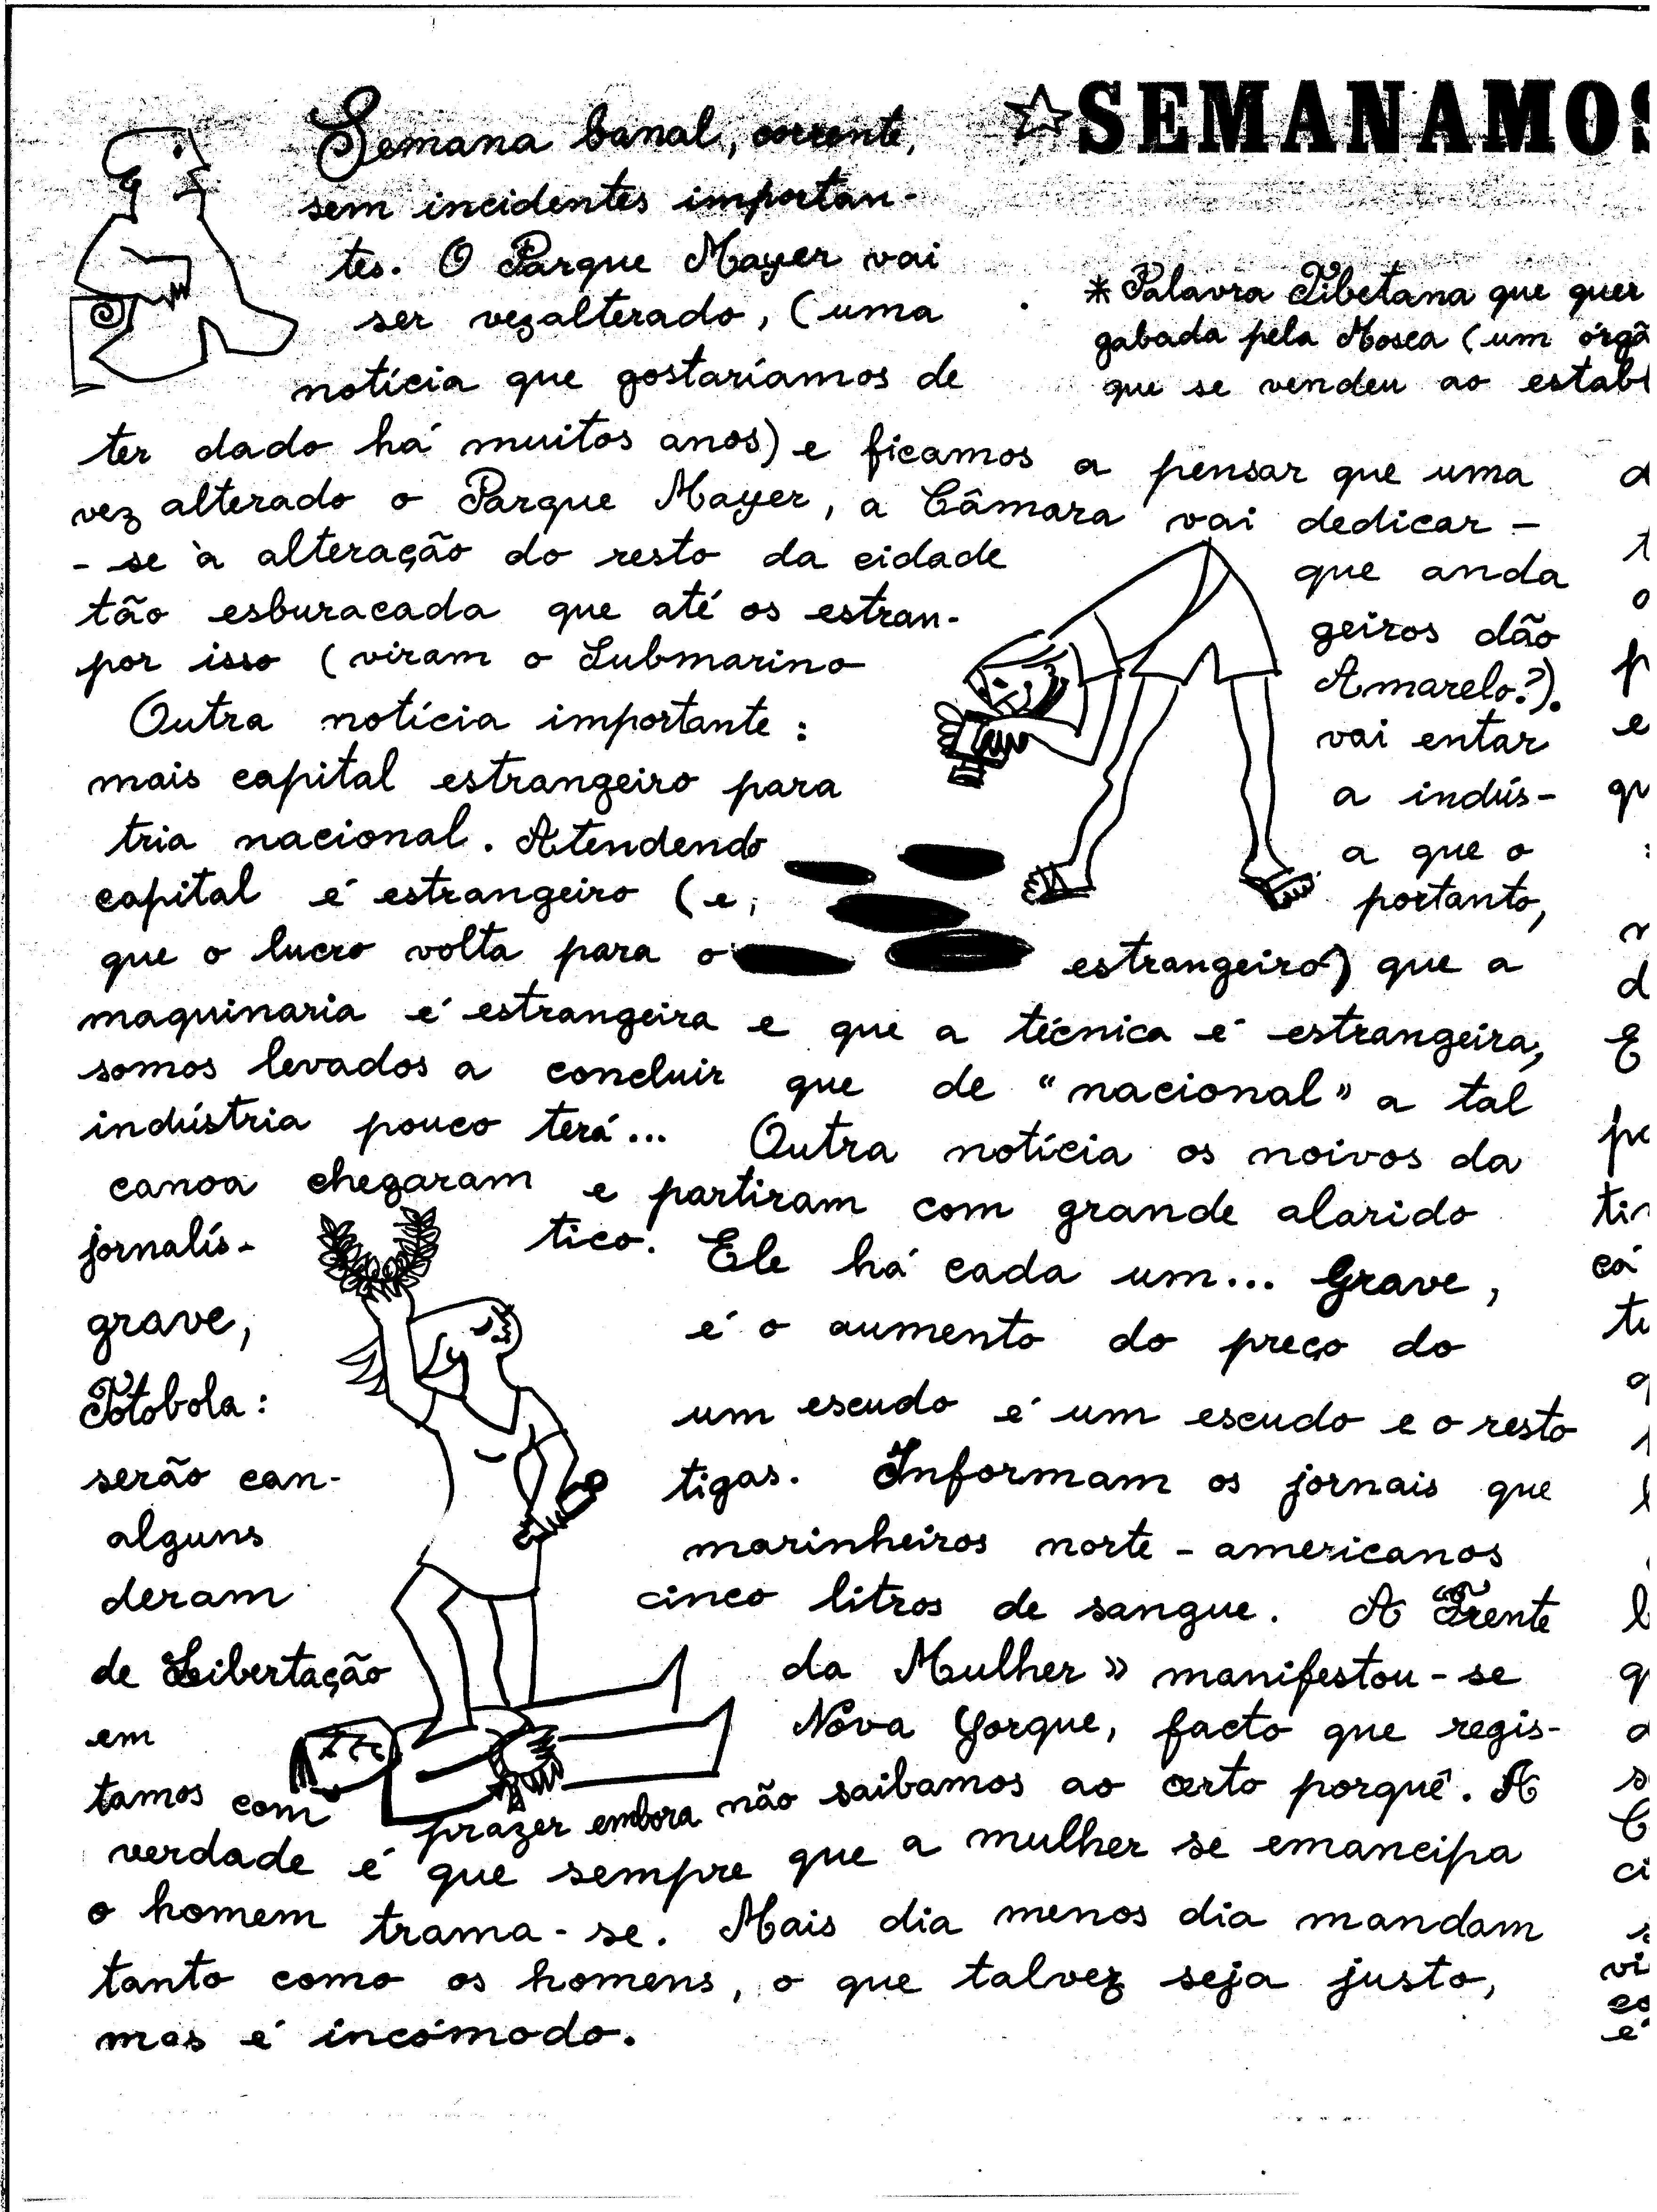 ☆SEMANAMOS
* Palavra Tibetana que quer
gabada pela Mosca (um órgã
que se vendeu ao establ
Semana banal, corrente,
sem incidentes importan-
tes. O Parque Mayer vai
ser vezalterado, (uma
notícia que gostaríamos de
ter dado há muitos anos) e ficamos a pensar que uma
vez alterado o Parque Mayer, a Câmara vai dedicar-
-se à alteração do resto da cidade que anda
tão esburacada que até os estran- geiros dão
por isso (viram o Submarino Amarelo?).
Outra notícia importante: vai entar
mais capital estrangeiro para a indús-
tria nacional. Atendendo a que o
capital é estrangeiro (e, portanto,
que o lucro volta para o estrangeiro) que a
maquinaria é estrangeira e que a técnica é estrangeira,
somos levados a concluir que de "nacional" a tal
indústria pouco terá... Outra notícia os noivos da
canoa chegaram e partiram com grande alarido
jornalís- tico. Ele há cada um... Grave,
grave, é o aumento do preço do
Totobola: um escudo é um escudo e o resto
serão can- tigas. Informam os jornais que
alguns marinheiros norte-americanos
deram cinco litros de sangue. A «Frente
de Libertação da Mulher» manifestou-se
em Nova Yorque, facto que regis-
tamos com prazer embora não saibamos ao certo porquê. A
verdade é que sempre que a mulher se emancipa
o homem trama-se. Mais dia menos dia mandam
tanto como os homens, o que talvez seja justo,
mas é incómodo.